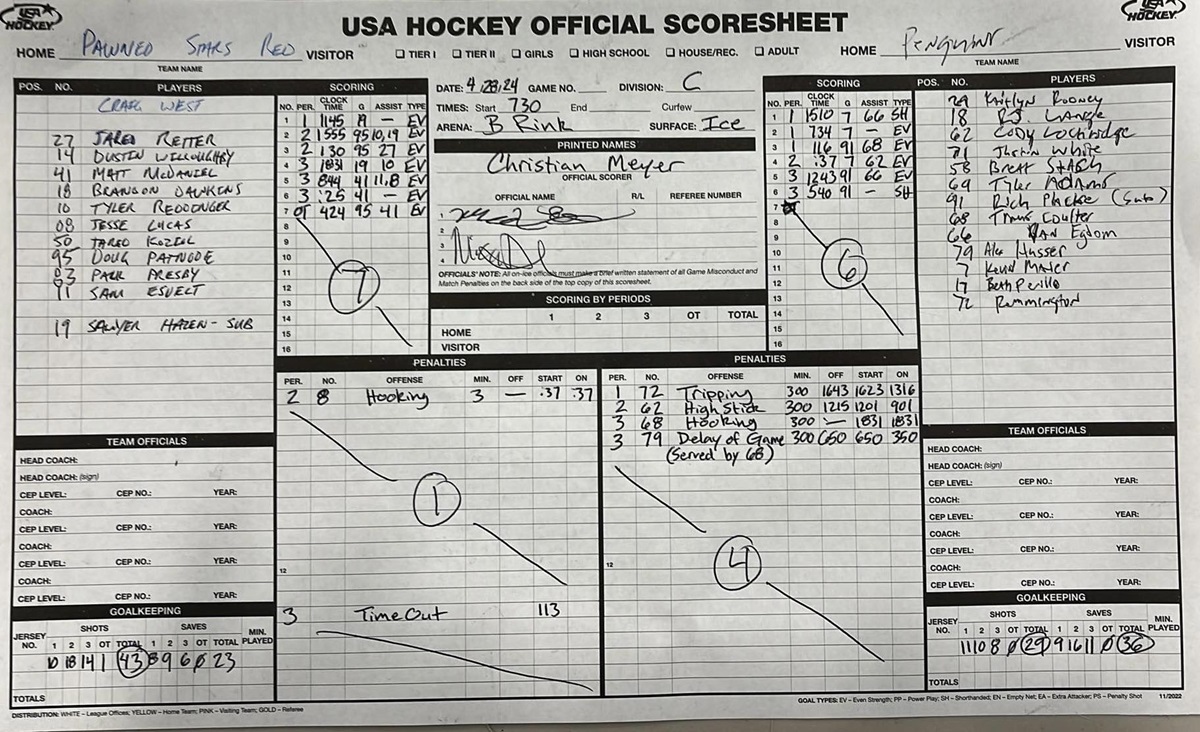 USA HOCKEY
USA HOCKEY OFFICIAL SCORESHEET
USA HOCKEY
HOME PAWNED STARS RED VISITOR
TEAM NAME
☐ TIER I ☐ TIER II ☐ GIRLS ☐ HIGH SCHOOL ☐ HOUSE/REC. ☐ ADULT
HOME VISITOR
TEAM NAME
POS. NO. PLAYERS
CRAIG WEST
27 JARED REITER
14 DUSTIN WILLOUGHBY
41 MATT McDANIEL
18 BRANDON DAWKINS
10 TYLER
08 JESSE LUCAS
50 JARED KOZIOL
95 DOUG PATNODE
PAUL PRESBY
11 SAM ESVELT
19 SAWYER HAZEN-SUB
SCORING
NO. PER. CLOCK TIME G ASSIST TYPE
1 1 1145 19 — EV
2 2 1555 95 10,19 EV
3 2 130 95 27 EV
4 3 1831 19 10 EV
5 3 844 41 11,8 EV
6 3 :25 41 — EV
7 OT 424 95 41 EV
8
9
10
11
12
13
14
15
16
7
DATE: 4/28/24 GAME NO. DIVISION: C
TIMES: Start 730 End Curfew
ARENA: B Rink SURFACE: Ice
PRINTED NAMES
Christian Meyer
OFFICIAL SCORER
OFFICIAL NAME R/L REFEREE NUMBER
1.
2.
3.
4.
OFFICIALS' NOTE: All on-ice officials must make a brief written statement of all Game Misconduct and
Match Penalties on the back side of the top copy of this scoresheet.
SCORING BY PERIODS
1 2 3 OT TOTAL
HOME
VISITOR
SCORING
NO. PER. CLOCK TIME G ASSIST TYPE
1 1 1510 7 66 SH
2 1 734 7 — EV
3 1 116 91 68 EV
4 2 :37 7 62 EV
5 3 1243 91 66 EV
6 3 540 91 — SH
7
8
9
10
11
12
13
14
15
16
6
POS. NO. PLAYERS
29 Kaitlyn Rooney
18 R.J. Lange
62 Cody Lochridge
71 Justin White
58 Brett Stach
69 Tyler Adams
91 Rich (Sub)
68 Travis Coulter
66 VAN Egdom
79 Alex Husser
7
17 Beth Perillo
72 Remmington
PENALTIES
PER. NO. OFFENSE MIN. OFF START ON
2 8 Hooking 3 — :37 :37
1
12
3 Time Out 113
PENALTIES
PER. NO. OFFENSE MIN. OFF START ON
1 72 Tripping 300 1643 1623 1316
2 62 High Stick 300 1215 1201 901
3 68 Hooking 300 — 1831 1831
3 79 Delay of Game 300 650 650 350
(Served by 68)
4
12
TEAM OFFICIALS
HEAD COACH:
HEAD COACH: (sign)
CEP LEVEL: CEP NO.: YEAR:
COACH:
CEP LEVEL: CEP NO.: YEAR:
COACH:
CEP LEVEL: CEP NO.: YEAR:
COACH:
CEP LEVEL: CEP NO.: YEAR:
GOALKEEPING
SHOTS SAVES
JERSEY NO. 1 2 3 OT TOTAL 1 2 3 OT TOTAL MIN. PLAYED
10 18 14 1 43 8 9 6 0 23
TOTALS
TEAM OFFICIALS
HEAD COACH:
HEAD COACH: (sign)
CEP LEVEL: CEP NO.: YEAR:
COACH:
CEP LEVEL: CEP NO.: YEAR:
COACH:
CEP LEVEL: CEP NO.: YEAR:
COACH:
CEP LEVEL: CEP NO.: YEAR:
GOALKEEPING
SHOTS SAVES
JERSEY NO. 1 2 3 OT TOTAL 1 2 3 OT TOTAL MIN. PLAYED
11 10 8 0 29 9 16 11 0 36
TOTALS
DISTRIBUTION: WHITE – League Offices; YELLOW – Home Team; PINK – Visiting Team; GOLD – Referee
GOAL TYPES: EV – Even Strength; PP – Power Play; SH – Shorthanded; EN – Empty Net; EA – Extra Attacker; PS – Penalty Shot 11/2022